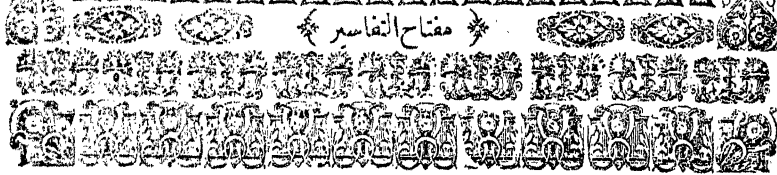 ﴿ مفتاح التفاسير ﴾